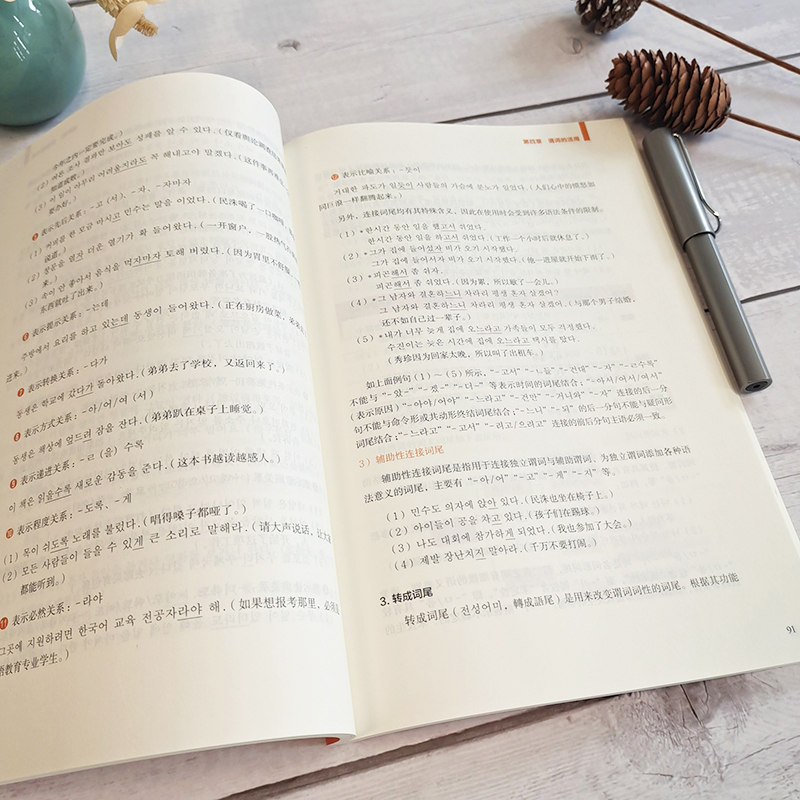 今年之内一定要完成。)
(2) 여론 조사 결과만 보아도 성패를 알 수 있다. (仅看舆论调查
知道成败。)
(3) 이 일이 아무리 어려울지라도 꼭 해내고야 말겠다. (这件事
要办好。)
❺ 表示先后关系: -고 (서)、-자、-자마자
(1) 커피를 한 모금 마시고 민수는 말을 이었다. (民洙喝了一口咖啡
说道。)
(2) 창문을 열자 더운 열기가 확 들어왔다. (一开窗户, 一股热气
来。)
(3) 속이 안 좋아서 음식을 먹자마자 토해 버렸다. (因为胃里不舒服
东西就吐了出来。)
❻ 表示提示关系: -는데
주방에서 요리를 하고 있는데 동생이 들어왔다. (正在厨房做菜, 弟弟
进来。)
❼ 表示转换关系: -다가
동생은 학교에 갔다가 돌아왔다. (弟弟去了学校, 又返回来了。)
❽ 表示方式关系: -아/어/여 (서)
동생은 책상에 엎드려 잠을 잔다. (弟弟趴在桌子上睡觉。)
❾ 表示递进关系: -ㄹ (을) 수록
이 책은 읽을수록 새로운 감동을 준다. (这本书越读越感人。)
❿ 表示程度关系: -도록、-게
(1) 목이 쉬도록 노래를 불렀다. (唱得嗓子都哑了。)
(2) 모든 사람들이 들을 수 있게 큰 소리로 말해라. (请大声说话, 让大家
都能听到。)
⓫ 表示必然关系: -라야
그곳에 지원하려면 한국어 교육 전공자라야 해. (如果想报考那里, 必须是
语教育专业学生。)
第四章 谓词的活用
⓬ 表示比喻关系: -듯이
거대한 파도가 일듯이 사람들의 가슴에 분노가 일었다. (人们心中的愤怒如
同巨浪一样翻腾起来。)
另外, 连接词尾均有其特殊含义, 因此在使用时会受到许多语法条件的限制。
(1) *한시간 동안 일을 했고서 쉬었다.
한시간 동안 일을 하고서 쉬었다. (工作一个小时后就休息了。)
(2) *그가 집에 들어섰자 비가 오기 시작했다.
그가 집에 들어서자 비가 오기 시작했다. (他一进屋就开始下雨了。)
(3) *피곤해서 좀 쉬자.
피곤해서 좀 쉬었다. (因为累, 所以歇了一会儿。)
(4) *그 남자와 결혼하느니 차라리 평생 혼자 살겠어?
그 남자와 결혼하느니 차라리 평생 혼자 살겠어. (与那个男子结婚,
还不如自己过一辈子。)
(5) *내가 너무 늦게 집에 오느라고 가족들이 모두 걱정했다.
수진이는 늦은 시간에 집에 오느라고 택시를 탔다.
(秀珍因为回家太晚, 所以叫了出租车。)
如上面例句 (1) ~ (5) 所示, "-고서" "-느라" "-건대" "-자" "-ㄹ수록"
不能与 "-았-" "-겠-" "-더-" 等表示时间的词尾结合; "-아서/어서/여서"
(表示原因) "-아야/어야" "-느라고" "-건만" "-거니와" "-자" 连接的后一分
句不能与命令形或共动形终结词尾结合; "-느니" "-되" 的后一分句不能与疑问形
词尾结合; "-느라고" "-고서" "-려고/으려고" 连接的前后分句主语必须一致。
3) 辅助性连接词尾
辅助性连接词尾是指用于连接独立谓词与辅助谓词、为独立谓词添加各种语
法意义的词尾, 主要有 "-아/어" "-고" "-게" "-지" 等。
(1) 민수도 의자에 앉아 있다. (民洙也坐在椅子上。)
(2) 아이들이 공을 차고 있다. (孩子们在踢球。)
(3) 나도 대회에 참가하게 되었다. (我也参加了大会。)
(4) 제발 장난치지 말아라. (千万不要打闹。)
3. 转成词尾
转成词尾 (전성어미, 轉成語尾) 是用来改变谓词词性的词尾。根据其功能
91